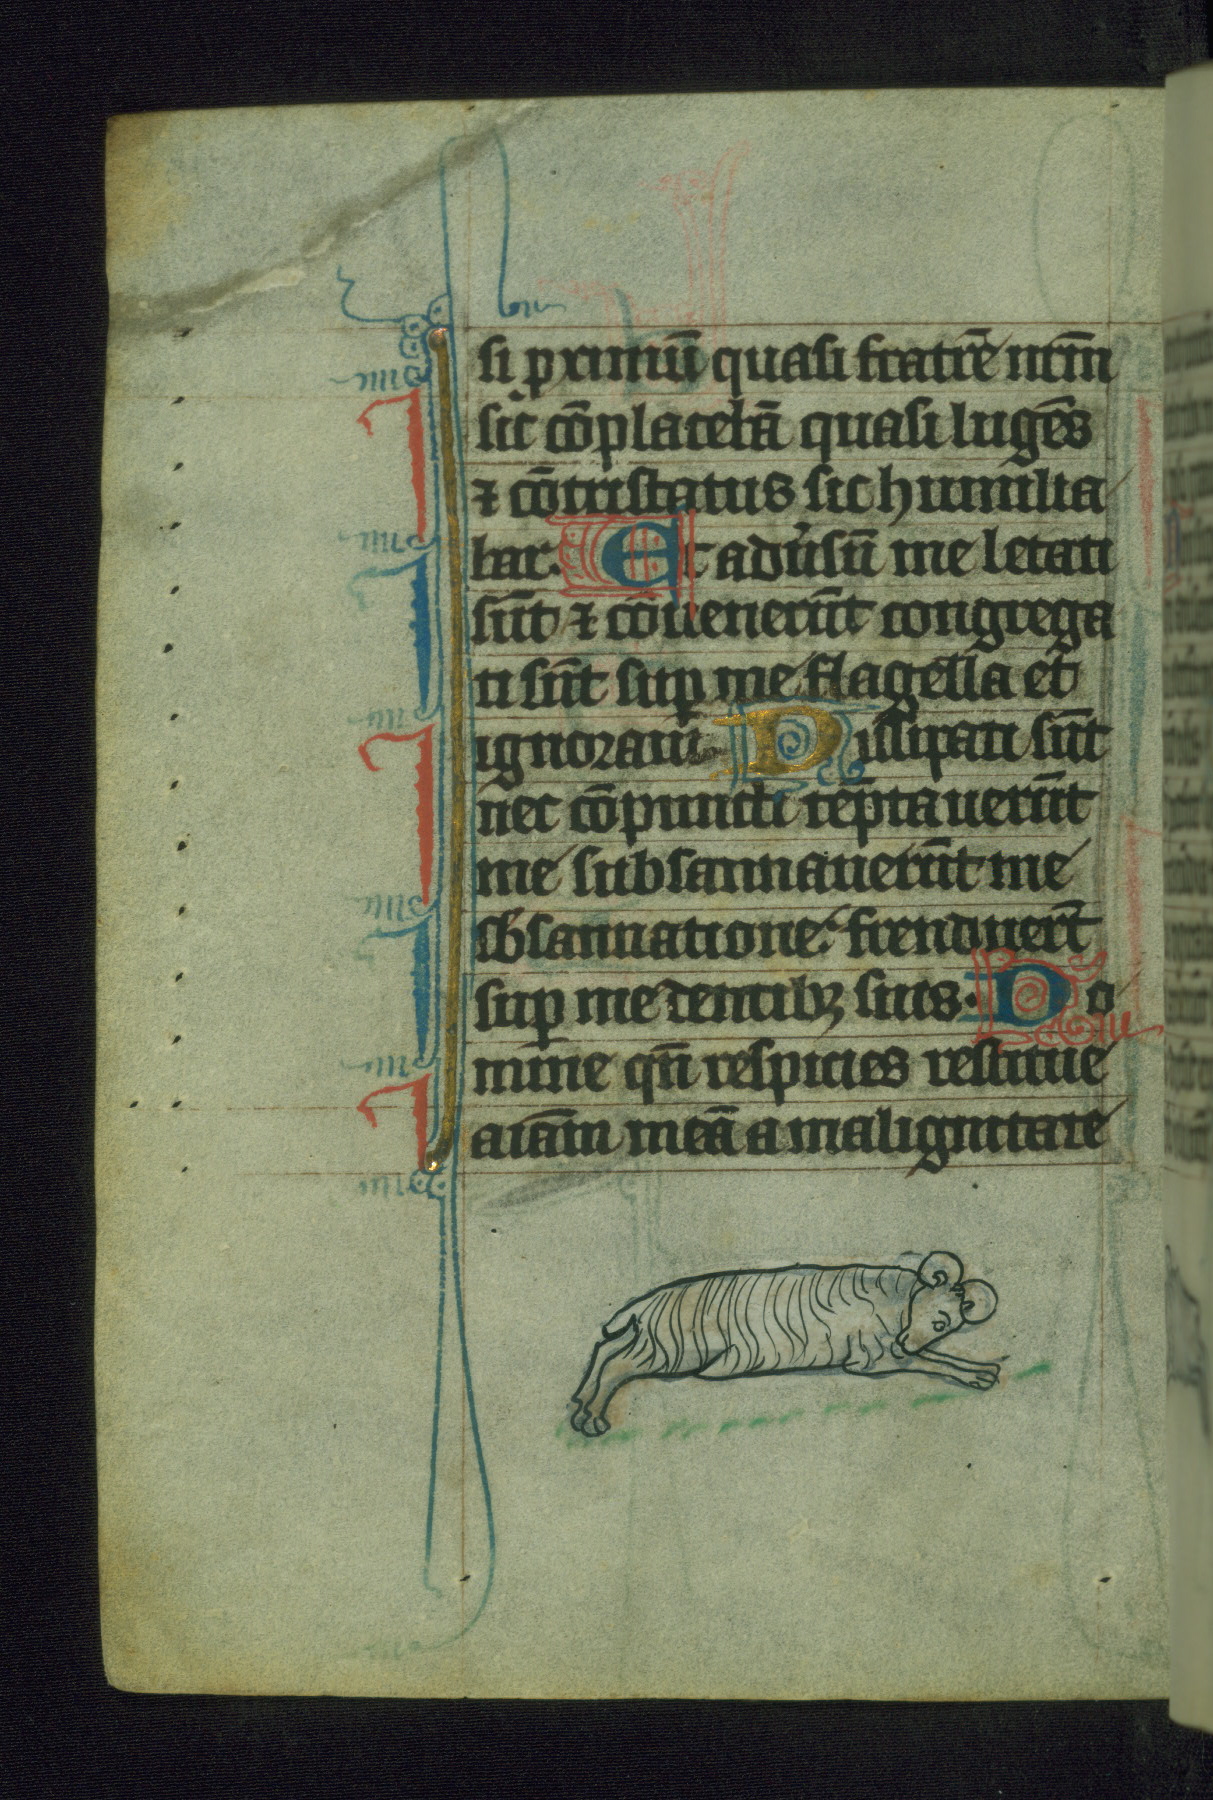 si ꝓximū quasi fratrē nr̄m
sic cōplacebā quasi lugēs
⁊ cōtristatus sic humilia
bar. Et adv̓sū me letati
sūt ⁊ cōuenerūt congrega
ti sūt suꝑ me flagella et
ignoraui. Dissipati sūt
nec cōpuncti tēptauerūt
me subsannauerūt me
sb̄sannatione: frenduer̄t
suꝑ me dentibꝫ suis. Do
mine qn̄ respicies restitue
aīam meā a malignitate